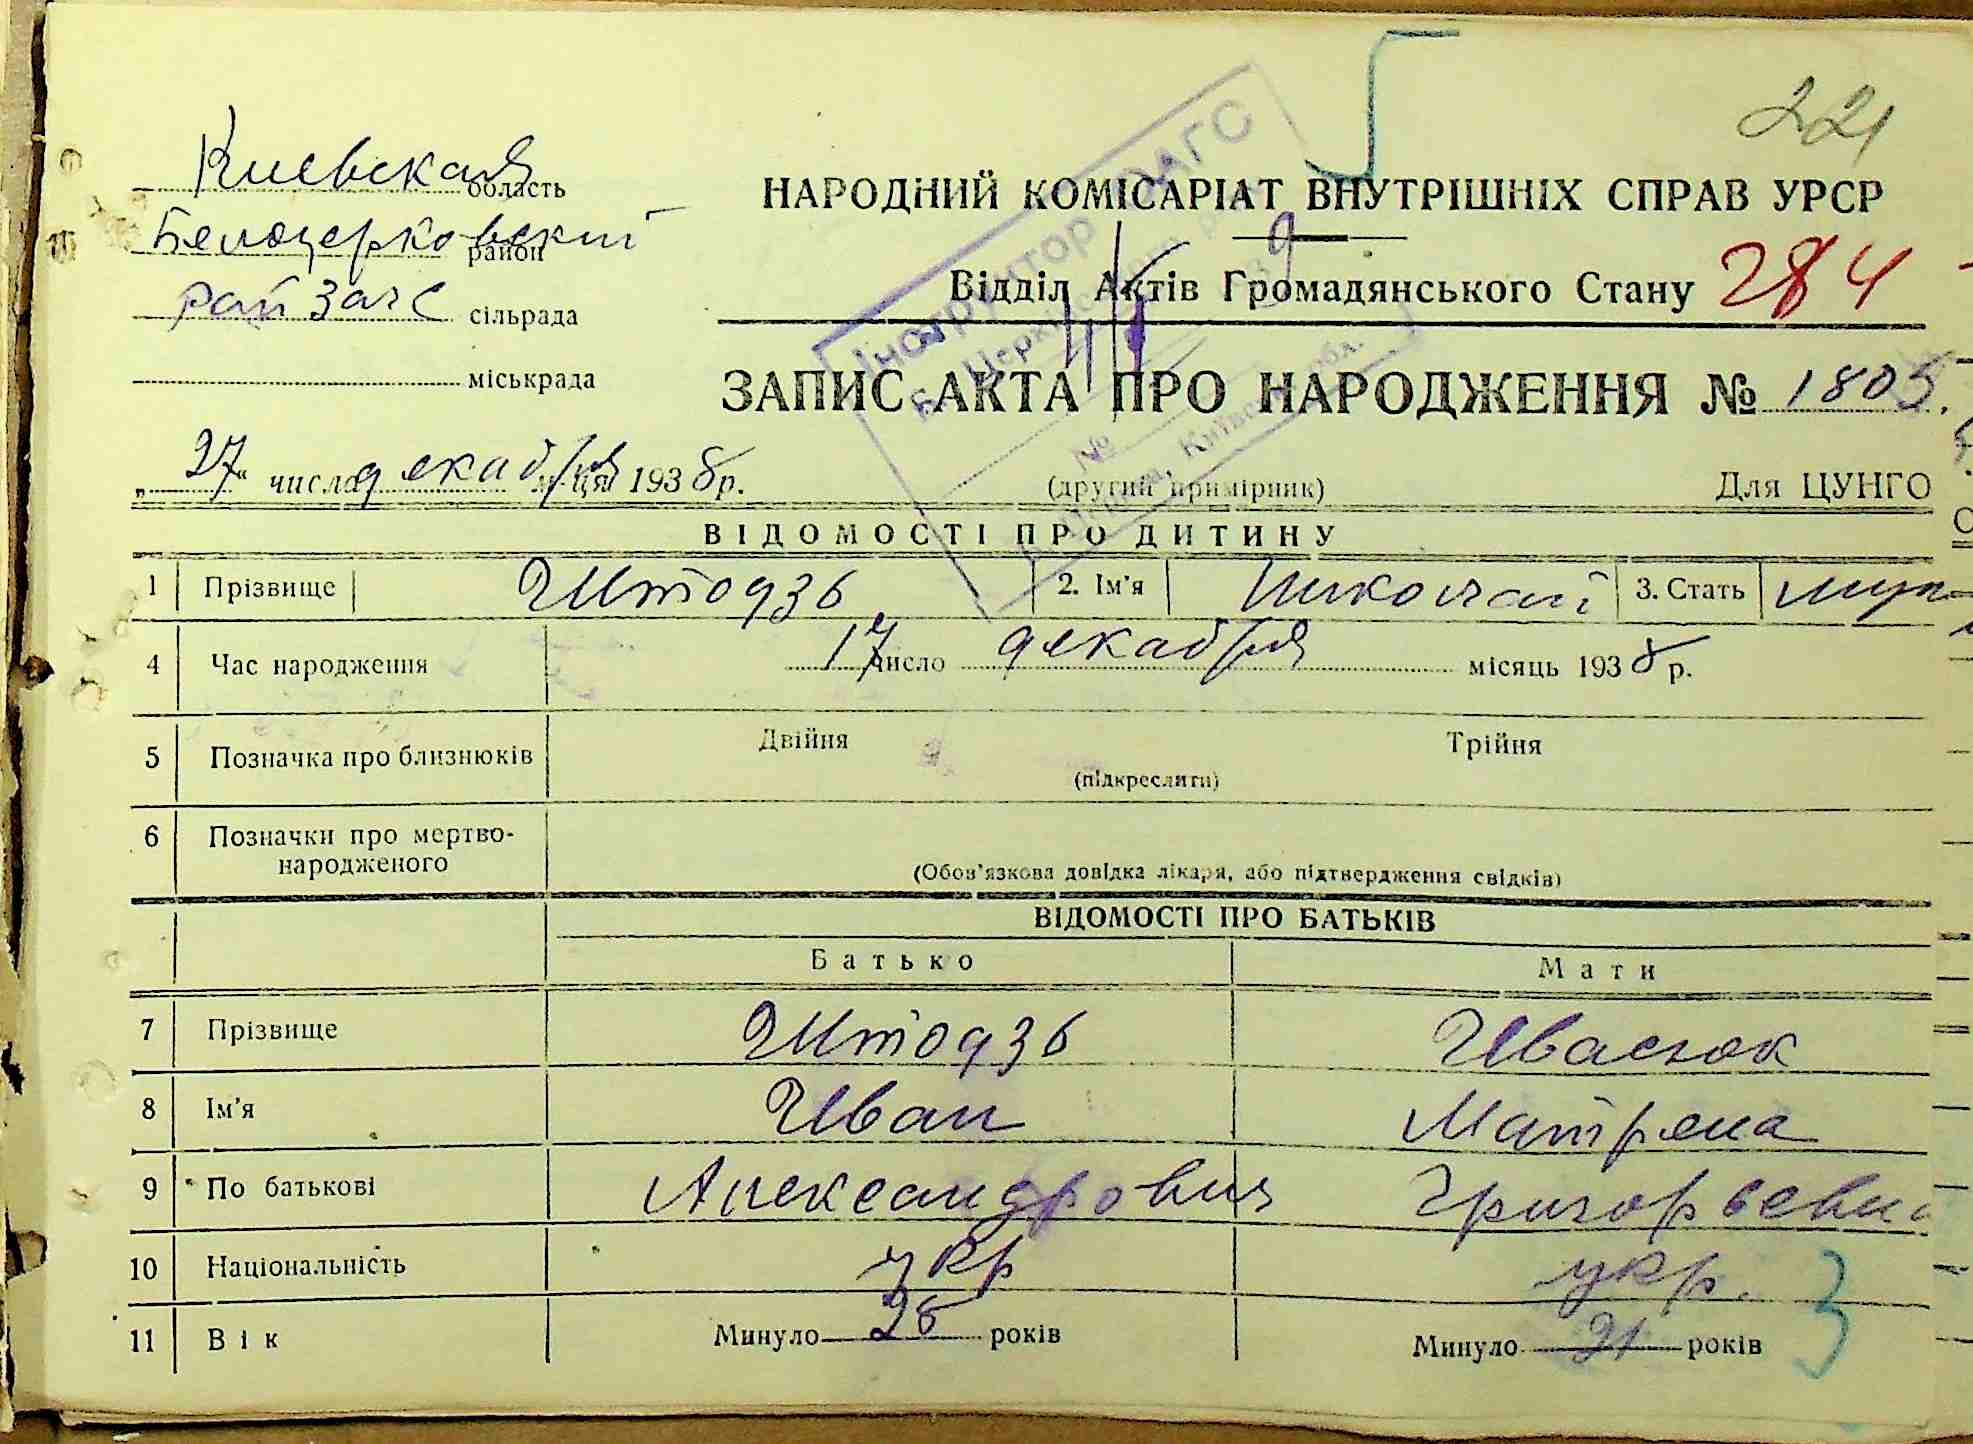 221
Киевская область
НАРОДНИЙ КОМІСАРІАТ ВНУТРІШНІХ СПРАВ УРСР
Белоцерковский район
Відділ Актів Громадянського Стану 284
райЗагс сільрада
міськрада
ЗАПИС АКТА ПРО НАРОДЖЕННЯ № 1805.
„27“ число декабря м-ця 1938 р.
(другий примірник) Для ЦУНГО
Інструктор ОАГС
ВІДОМОСТІ ПРО ДИТИНУ
1 Прізвище Штодзь 2. Ім'я Николай 3. Стать муж
4 Час народження 17 число декабря місяць 1938 р.
5 Позначка про близнюків Двійня Трійня
(підкреслити)
6 Позначки про мертво-
народженого
(Обов'язкова довідка лікаря, або підтвердження свідків)
ВІДОМОСТІ ПРО БАТЬКІВ
Батько Мати
7 Прізвище Штодзь Ивасюк
8 Ім'я Иван Матрена
9 По батькові Александрович Григорьевна
10 Національність укр укр.
11 Вік Минуло 28 років Минуло 21 років
3